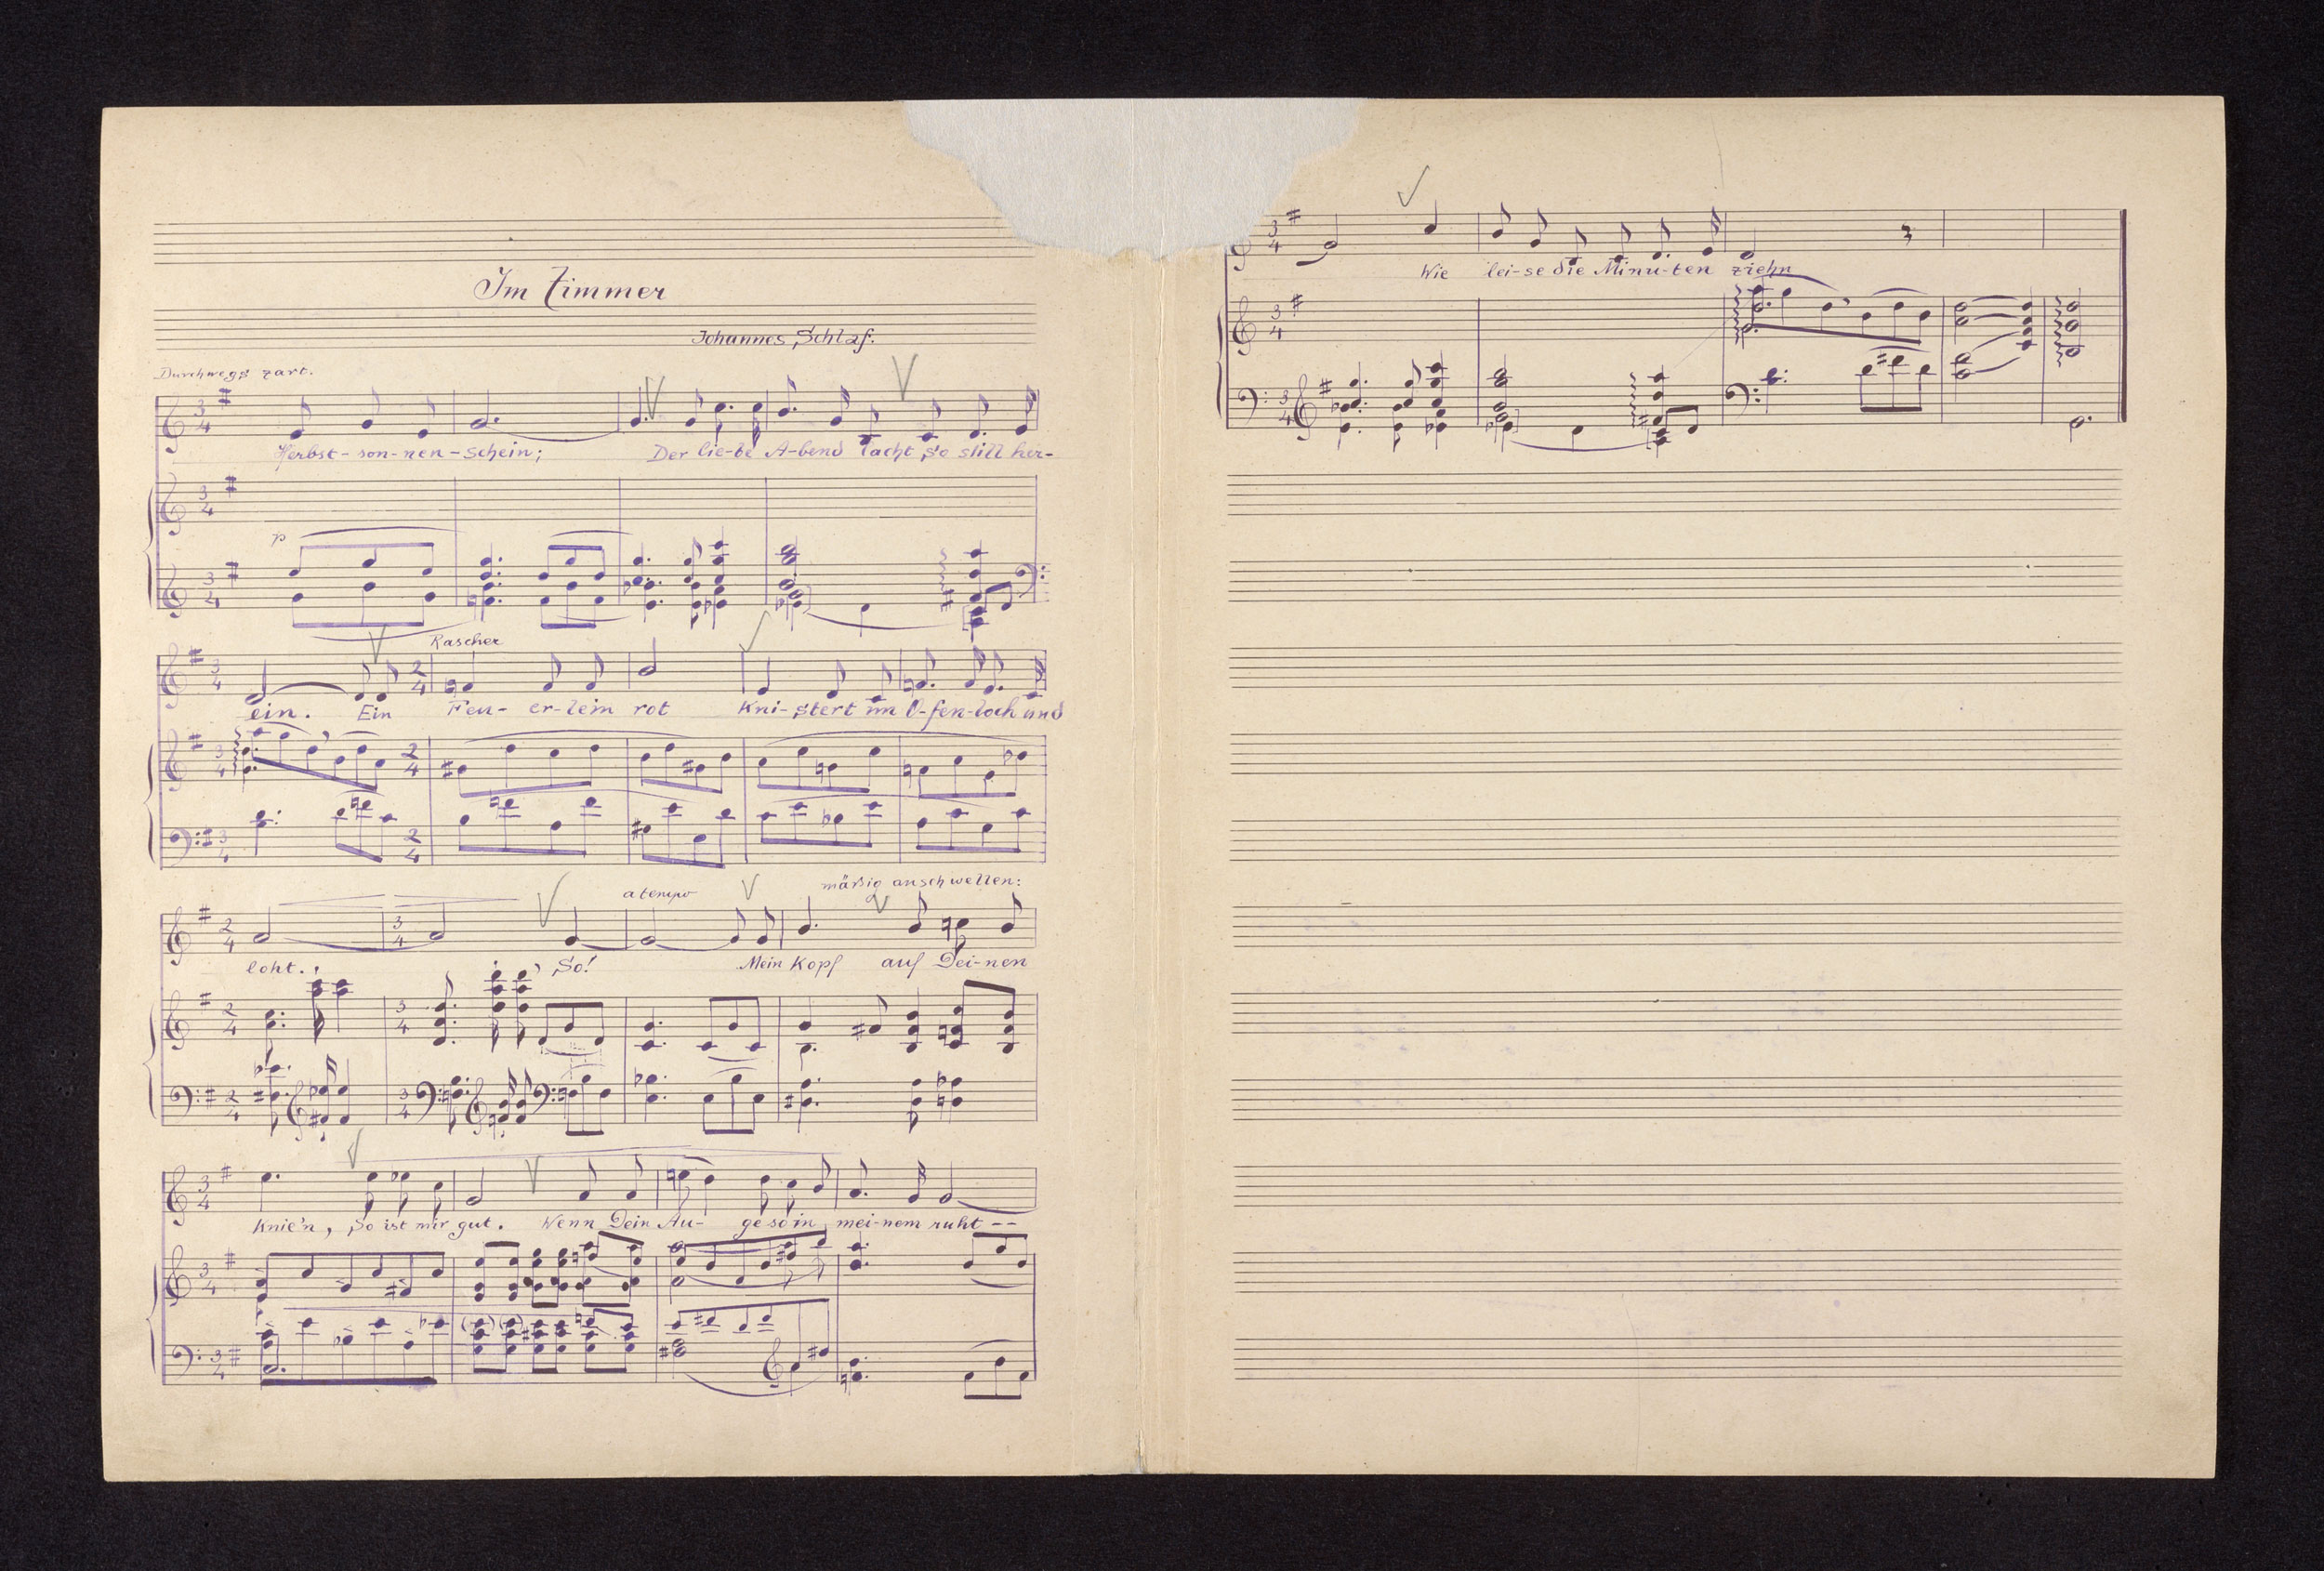 Im Zimmer
Johannes Schlaf.
Durchwegs zart.
Herbst-son-nen-schein; Der lie-be A-bend lacht so still her-
p
Rascher
ein. Ein Feu-er-lein rot Kni-stert im O-fen-loch und
a tempo mäßig anschwellen:
loht. So! Mein Kopf auf Dei-nen
Knie'n, So ist mir gut. Wenn Dein Au-ge so in mei-nem ruht --
Wie lei-se die Minu-ten ziehn